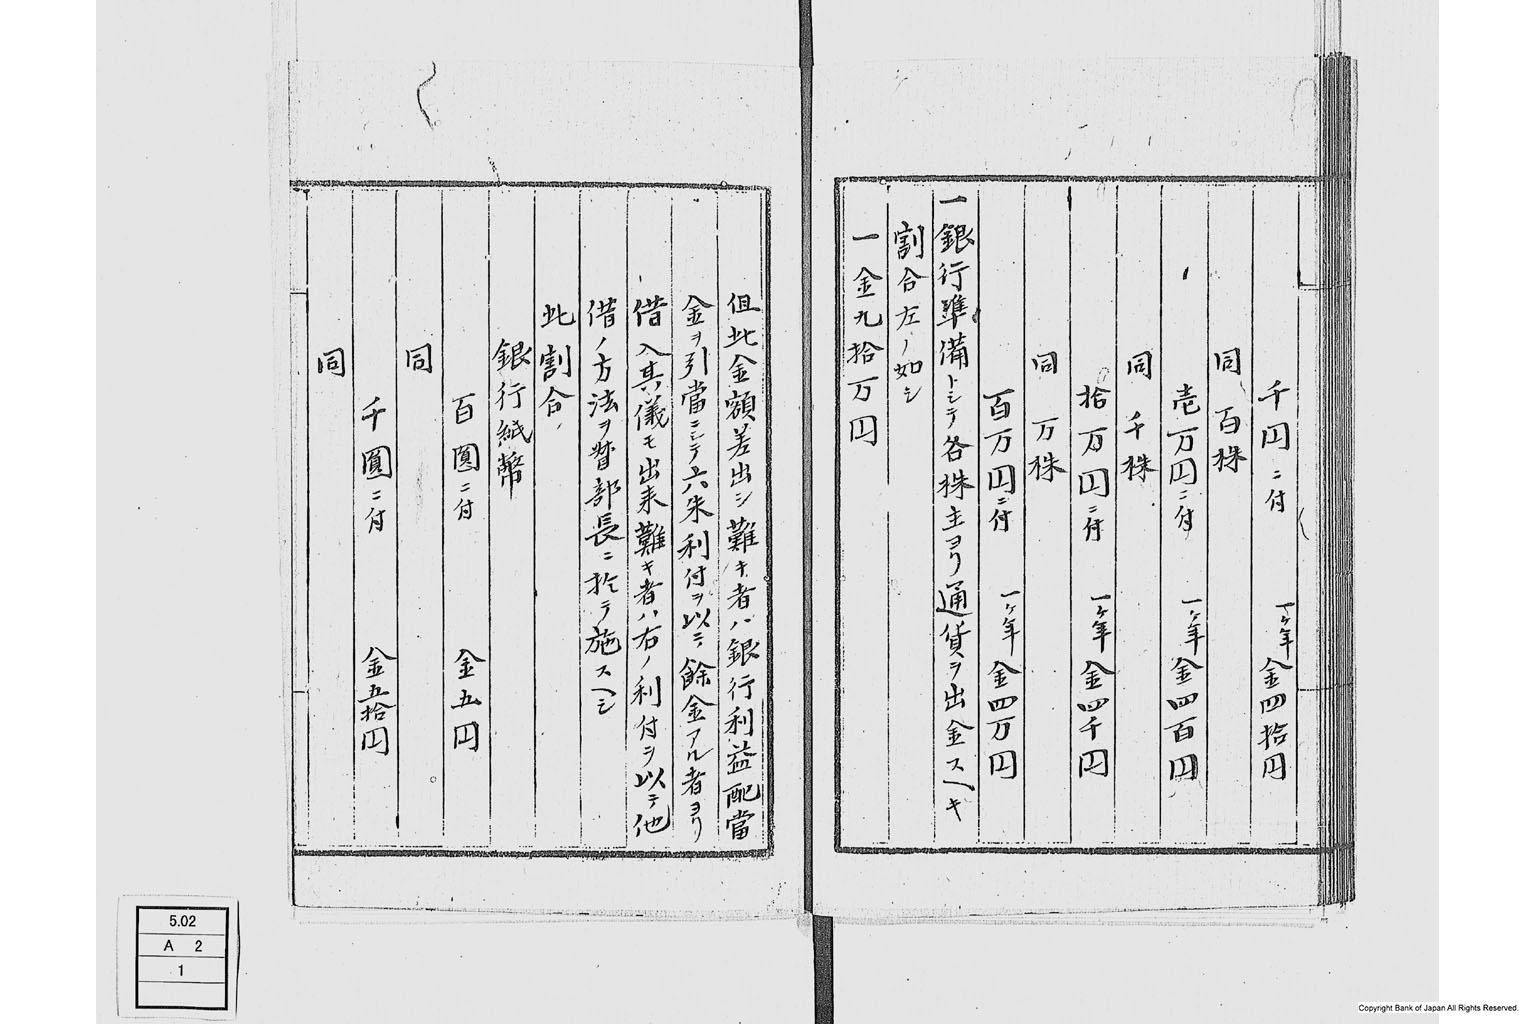 千円ニ付 一ケ年金四拾円
同 百株
壱万円ニ付 一ケ年金四百円
同 千株
拾万円ニ付 一ケ年金四千円
同 万株
百万円ニ付 一ケ年金四万円
一銀行準備トシテ各株主ヨリ通貨ヲ出金スヘキ
割合左ノ如シ
一金九拾万円
但此金額差出シ難キ者ハ銀行利益配當
金ヲ引當ニシテ六朱利付ヲ以テ餘金アル者ヨリ
借入其儀モ出来難キ者ハ右ノ利付ヲ以テ他
借ノ方法ヲ督部長ニ於テ施スヘシ
此割合
銀行紙幣
百圓ニ付 金五円
同
千圓ニ付 金五拾円
同
5.02
A 2
1
Copyright Bank of Japan All Rights Reserved.